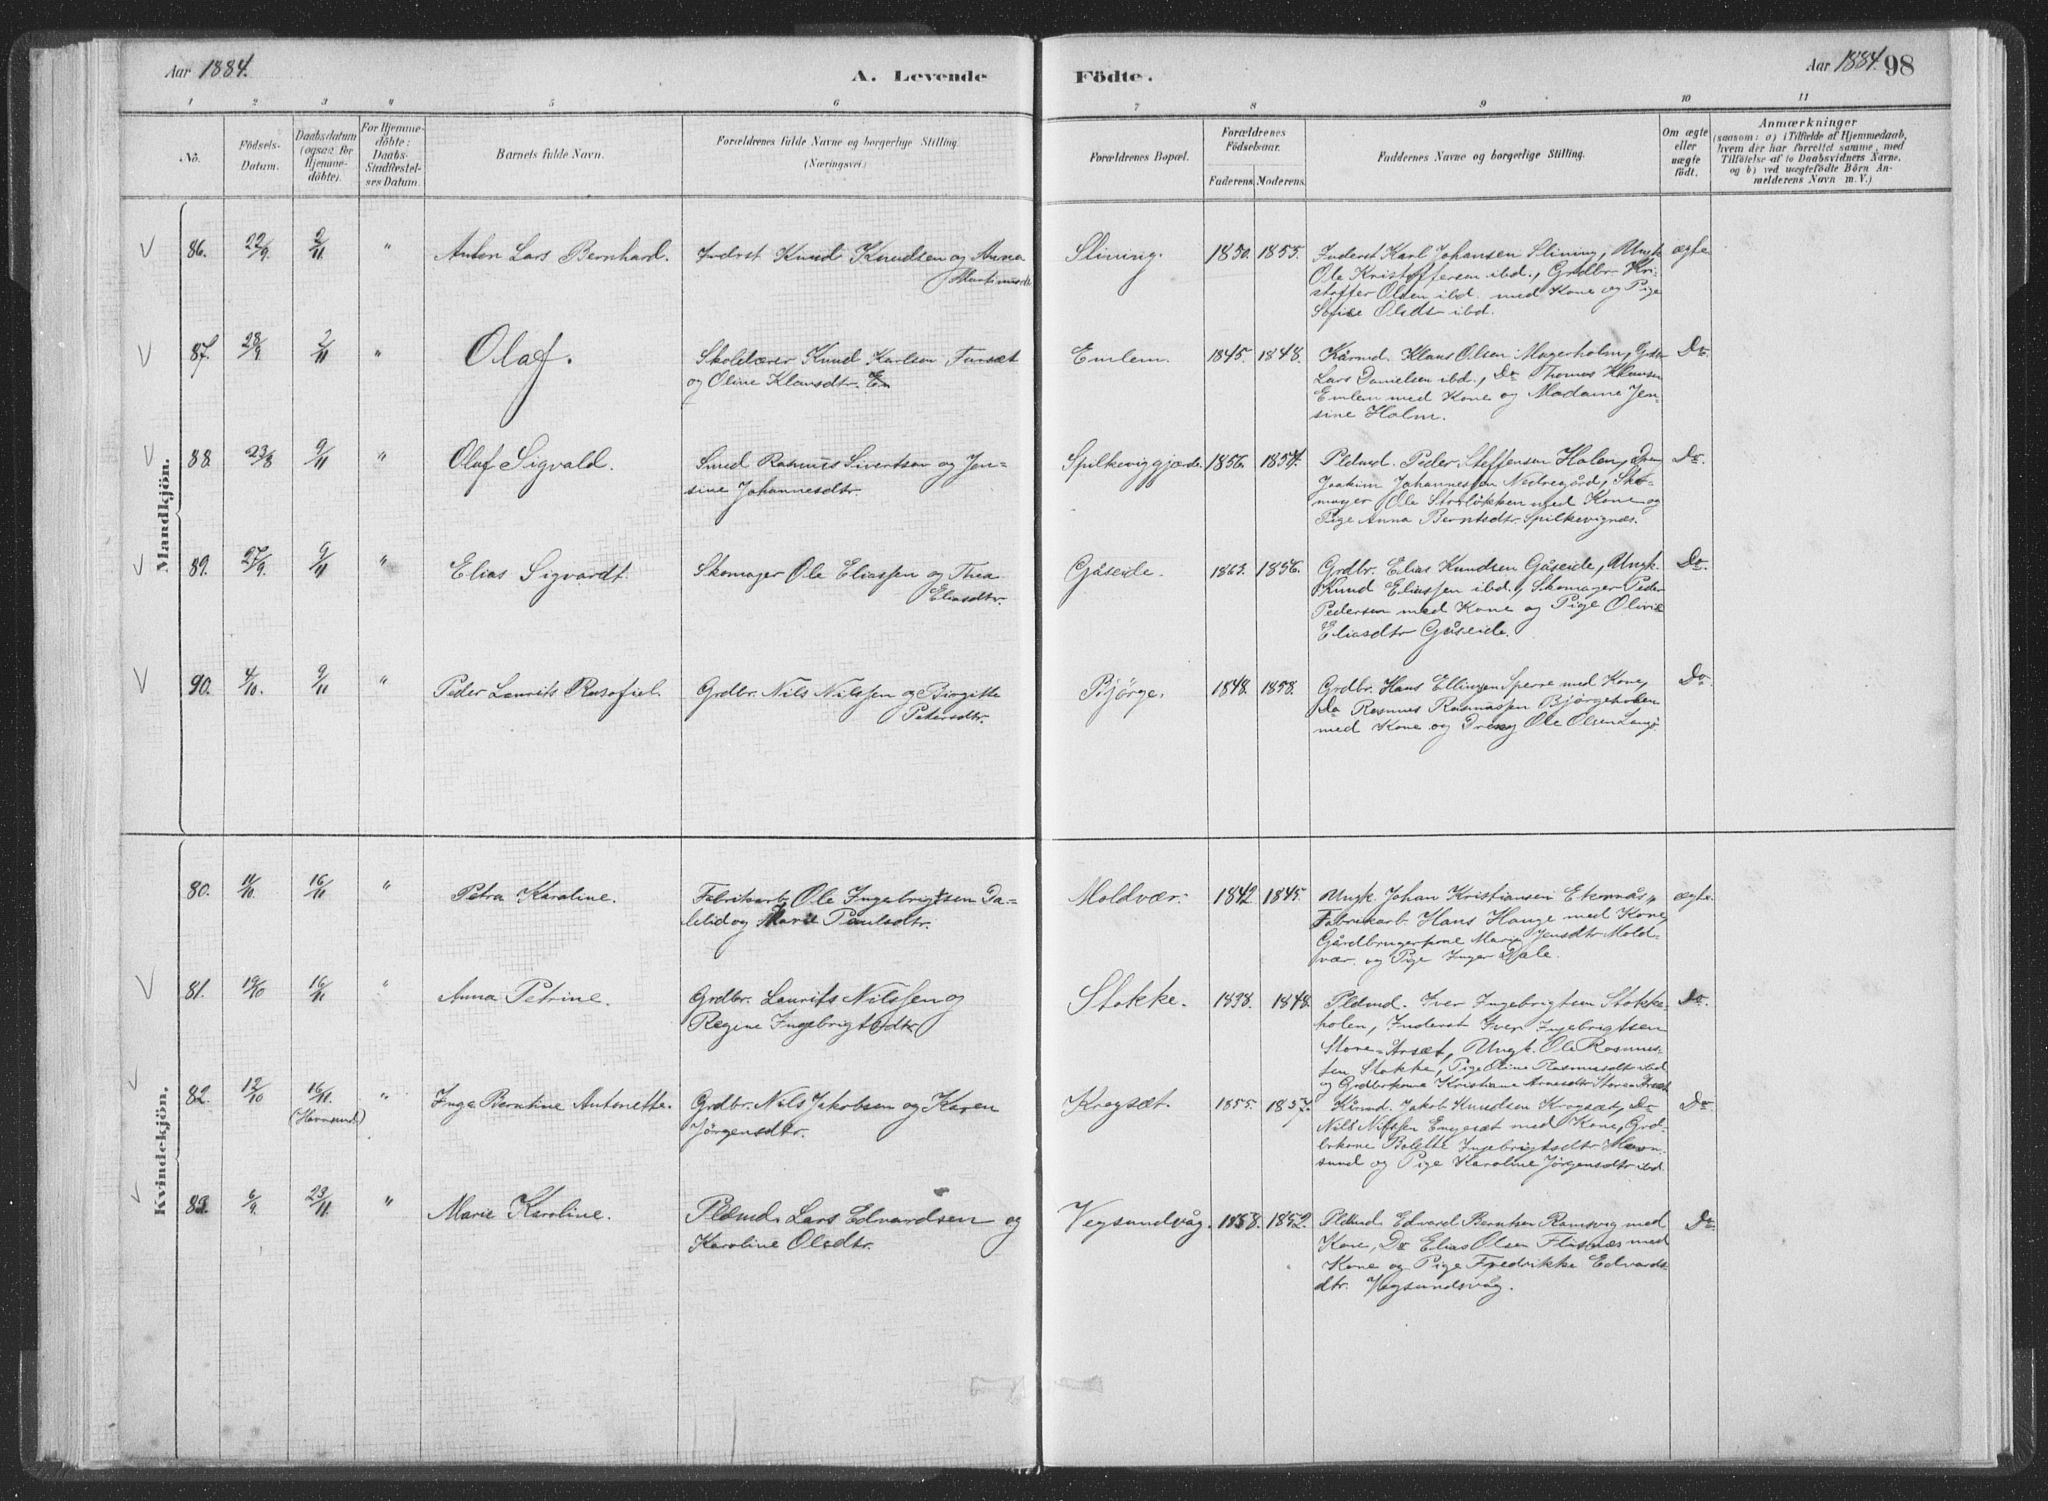 Aar 1884.
A. Levende
Födte.
Aar 1884. 98
1 2 3 4 5 6 7 8 9 10 11
No.
Födsels-
Datum.
Daabsdatum
(ogsaa for
Hjemme-
döbte).
For Hjemme-
döbte:
Daabs-
Stadfæstel-
ses Datum.
Barnets fulde Navn.
Forældrenes fulde Navne og borgerlige Stilling.
(Næringsvei)
Forældrenes Bopæl.
Forældrenes
Födselsaar.
Faderens. Moderens.
Faddernes Navne og borgerlige Stilling.
Om ægte
eller
uægte
födt.
Anmærkninger
(saasom: a) i Tilfælde af Hjemmedaab,
hvem der har forrettet samme, med
Tilföielse af to Daabsvidners Navne,
og b) ved uægtefödte Börn An-
melderens Navn m. V.)
Mandkjön.
86. 22/9 2/11 " Anton Lars Bernhard.
Inderst Knud Knudsen og Anna
Martinusdtr
Slining. 1850. 1855.
Inderst Karl Johansen Slining, Ungk.
Ole Kristoffersen ibd., Grdbr. Kri-
stoffer Olsen ibd. med Kone og Pige
Sofie Olsdtr ibd.
ægte
87. 28/9 2/11 " Olaf.
Skolelærer Knud Karlsen
og Oline Klausdtr.
Emlem. 1845. 1848.
Kårmd. Klaus Olsen Magerholm,
Lars Danielsen ibd., Do Thomas
Emlem med Kone og Madame Jen-
sine Holm.
Do
88. 23/8 9/11 " Olaf Sigvald.
Smed Rasmus Sivertsen og Jen-
sine Johannesdtr.
Spilkeviggjærde 1856. 1854.
Pldmd. Peder Steffensen Holen,
Joakim Johannessen Nedregård, Sko-
mager Ole Storløkken med Kone og
Pige Anna Berntsdtr. Spilkevignæs.
Do
89. 27/9. 9/11 " Elias Sigvardt.
Skomager Ole Eliassen og Thea
Eliasdtr.
Gåseide. 1856.
Grdbr. Elias Knudsen Gåseide, Ungk.
Knud Eliassen ibd., Skomager Peder
Pedersen med Kone og Pige Olivie
Eliasdtr Gåseide.
Do
90. 4/10. 9/11 " Peder Laurits
Grdbr. Nils Nilssen og Birgitte
Petersdtr.
Bjørge. 1848. 1858.
Grdbr. Hans Ellingsen Sperre med Kone,
Do Rasmus Rasmussen Bjørgeholen
med Kone og Dreng Ole Olsen
Do
Kvindekjön.
80. 11/10. 16/11 " Petra Karoline.
Fabrikarb. Ole Ingebrigtsen Da-
lelid og Marie Paulsdtr.
Moldvær. 1842 1845.
Ungk. Johan Kristiansen Ekornås,
Fabrikarb. Hans Hauge med Kone,
Gårdbrugerkone Marie Jensdtr Mold-
vær. og Pige Inger Dale.
ægte.
81. 19/10 16/11 " Anna Petrine.
Grdbr. Laurits Nilssen og
Regine Ingebrigtsdtr
Stokke. 1838. 1848.
Pldmd. Iver Ingebrigtsen Stokke-
holen, Inderst Iver Ingebrigtsen
Store-Arsæt, Ungk. Ole Rasmus-
sen Stokke, Pige Oline Rasmusdtr ibd
og Grdbrkone Kristiane Arnesdtr
Do
82. 12/10 16/11. " Inga Berntine Antonette.
(Havnsund)
Grdbr. Nils Jakobsen og Karen
Jørgensdtr.
Krogsæt. 1855. 1857.
Kårmd. Jakob Knudsen Krogsæt, Do
Nils Nilssen Engesæt med Kone, Grd-
brkone Bolette Ingebrigtsdtr Havn-
sund og Pige Karoline Jørgensdtr ibd.
Do
83. 6/9. 23/11. " Marie Karoline.
Pldmd. Lars Edvardsen og
Karoline Olsdtr.
Vegsundvåg. 1858. 1852.
Pldmd. Edvard Berntsen Ramsvig med
Kone, Do Elias Olsen Flisnæs med
Kone og Pige Fredrikke Edvards-
dtr. Vegsundsvåg.
Do